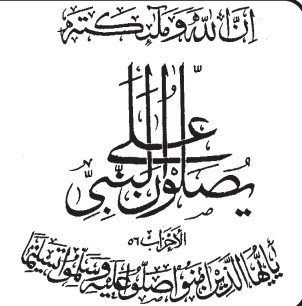 إِنَّ اللّٰهَ وَمَلٰٓئِكَتَهٗ
يُصَلُّوْنَ عَلَى النَّبِيِّ
الأحزاب ٥٦
يٰٓأَيُّهَا الَّذِيْنَ اٰمَنُوْا صَلُّوْا عَلَيْهِ وَسَلِّمُوْا تَسْلِيْمًا